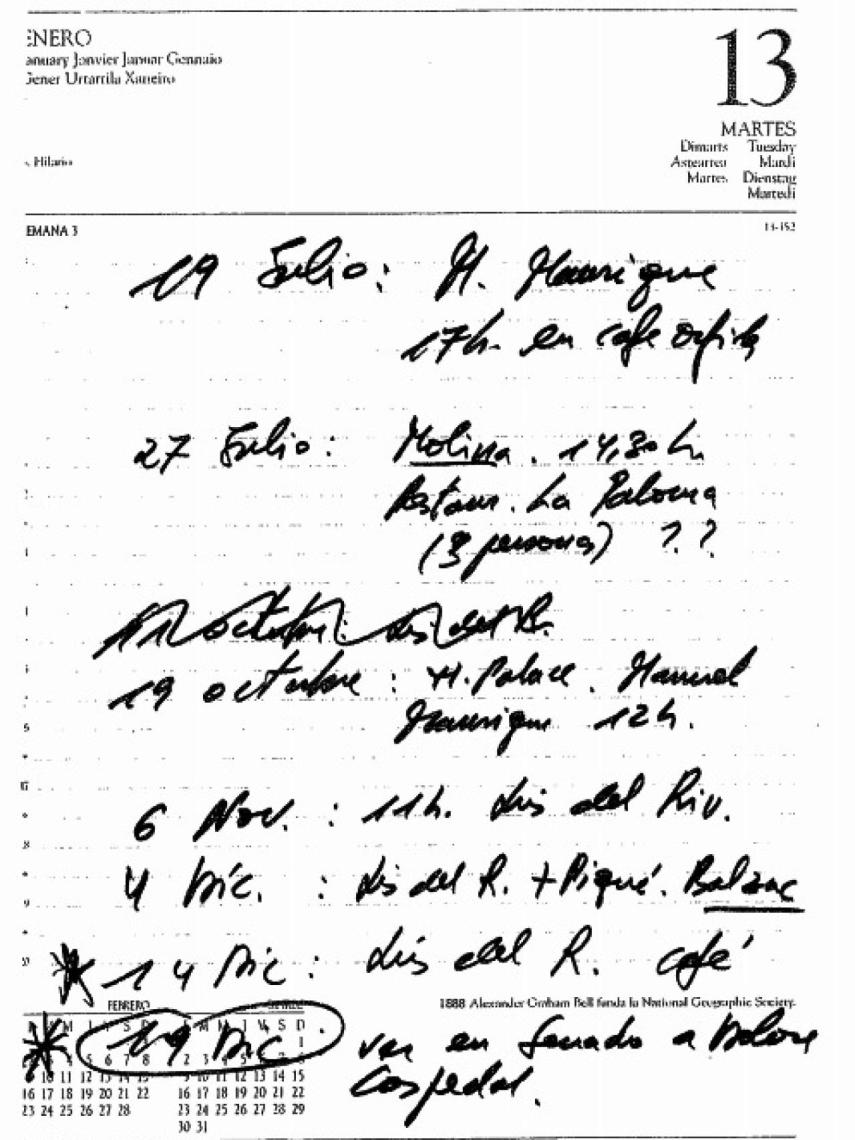 ENERO
anuary Janvier Januar Gennaio
Gener Urtarrila Xaneiro
13
MARTES
Dimarts Tuesday
Asteartea Mardi
Martes Dienstag
Martedi
. Hilario
EMANA 3
13-352
19 Julio: M. Manrique
17h. en cafe
27 Julio: Molina. 14,30 h
Restaur. La Paloma
(3 personas) ??
11 octubre: Luis del R.
19 octubre: H. Palace. Manuel
Manrique 12h.
6 Nov.: 11h. Luis del Riv.
4 Dic.: Luis del R. + Piqué. Balzac
14 Dic: Luis del R. café
FEBRERO
1888 Alexander Graham Bell funda la National Geographic Society.
19 Dic. ver en Senado a Dolores
Cospedal.
M J V S D
1
5 6 7 8 2 3 4 5 6 7 8
10 11 12 13 14 15 9 10 11 12 13 14 15
16 17 18 19 20 21 22 16 17 18 19 20 21 22
23 24 25 26 27 28 23 24 25 26 27 28 29
30 31